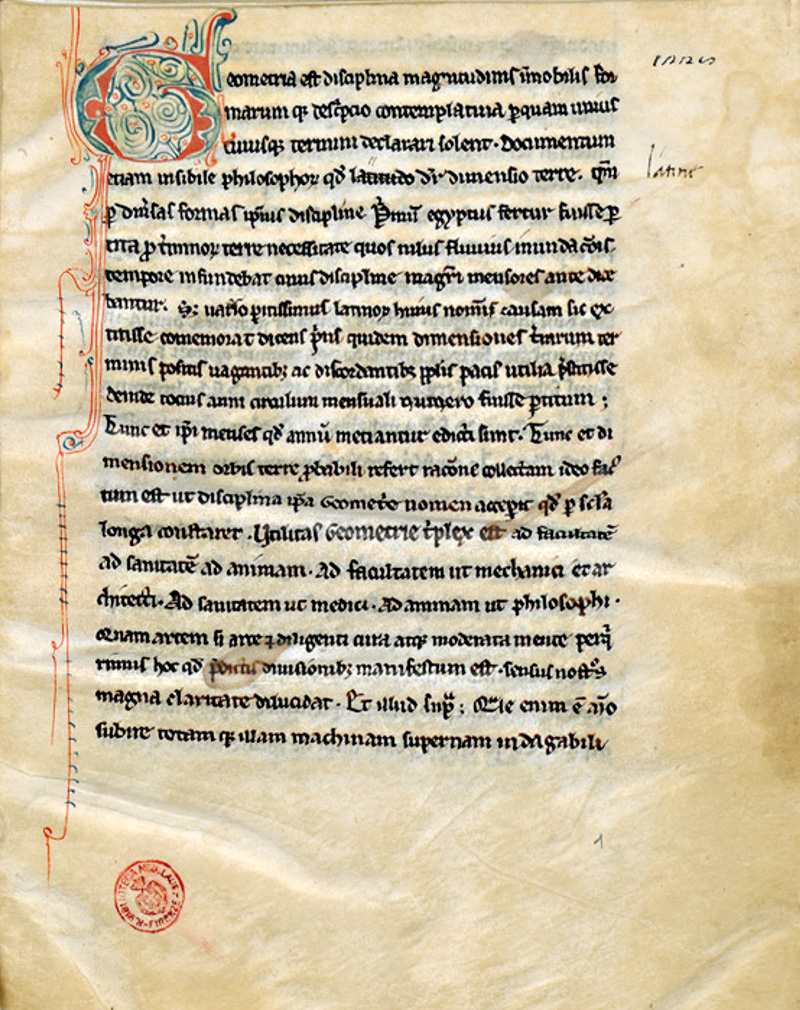 Geometria est disciplina magnitudinis īmobilis for
marum q; desc̄pcio contemplatiua p quam unius
cuiusq; termini declarari solent. Documentum
etiam inſibile philosophoꝝ qd̄ dr̄ dimensio terre. qm̄
latine
ꝑ diu̾sas formas ipsius discipline. P̾mū egyptus fertur fuisse ꝑ
tita ꝓ t̾minoꝝ terre necessitate quos nilus fluuius inundacōis
tempore infundebat cuius discipline magr̄i mensores ante dice
bantur. Sꝫ uarro ꝑitissimus latinoꝝ huius nomīs causam sic ex
titisse comemorat dicens p̾us quidem dimensiones t̾rarum ter
minis positis uagantibꝫ ac discordantibꝫ pp̄lis pacis utilia p̄stitisse
deinde tocius anni circulum mensuali numero fuisse ꝑtitum ;
Tunc et ip̄i menses qd̄ annū metiantur edicti sunt. Tunc et di
mensionem orbis terre ꝓbabili refert racōne collectam ideo fac
tum est ut disciplina ip̄a Geomet̾e nomen acceperit qd̄ ꝑ secla
longa constaret. Utilitas Geometrie t̾plex est ad facultatē
ad sanitatē ad animam. Ad facultatem ut mechanici et ar
chitecti. Ad sanitatem ut medici. Ad animam ut philosophi.
Quam artem si arte ⁊ diligenti cura atq; moderata mente perq̄
rimus hoc qd̄ p̄dictis diuisionibꝫ manifestum est. sensus nostros
magna claritate dilucidat. Et illud sup̄ ; Q̄le enim ē aīo
subire totam q; illam machinam supernam indagabili
1